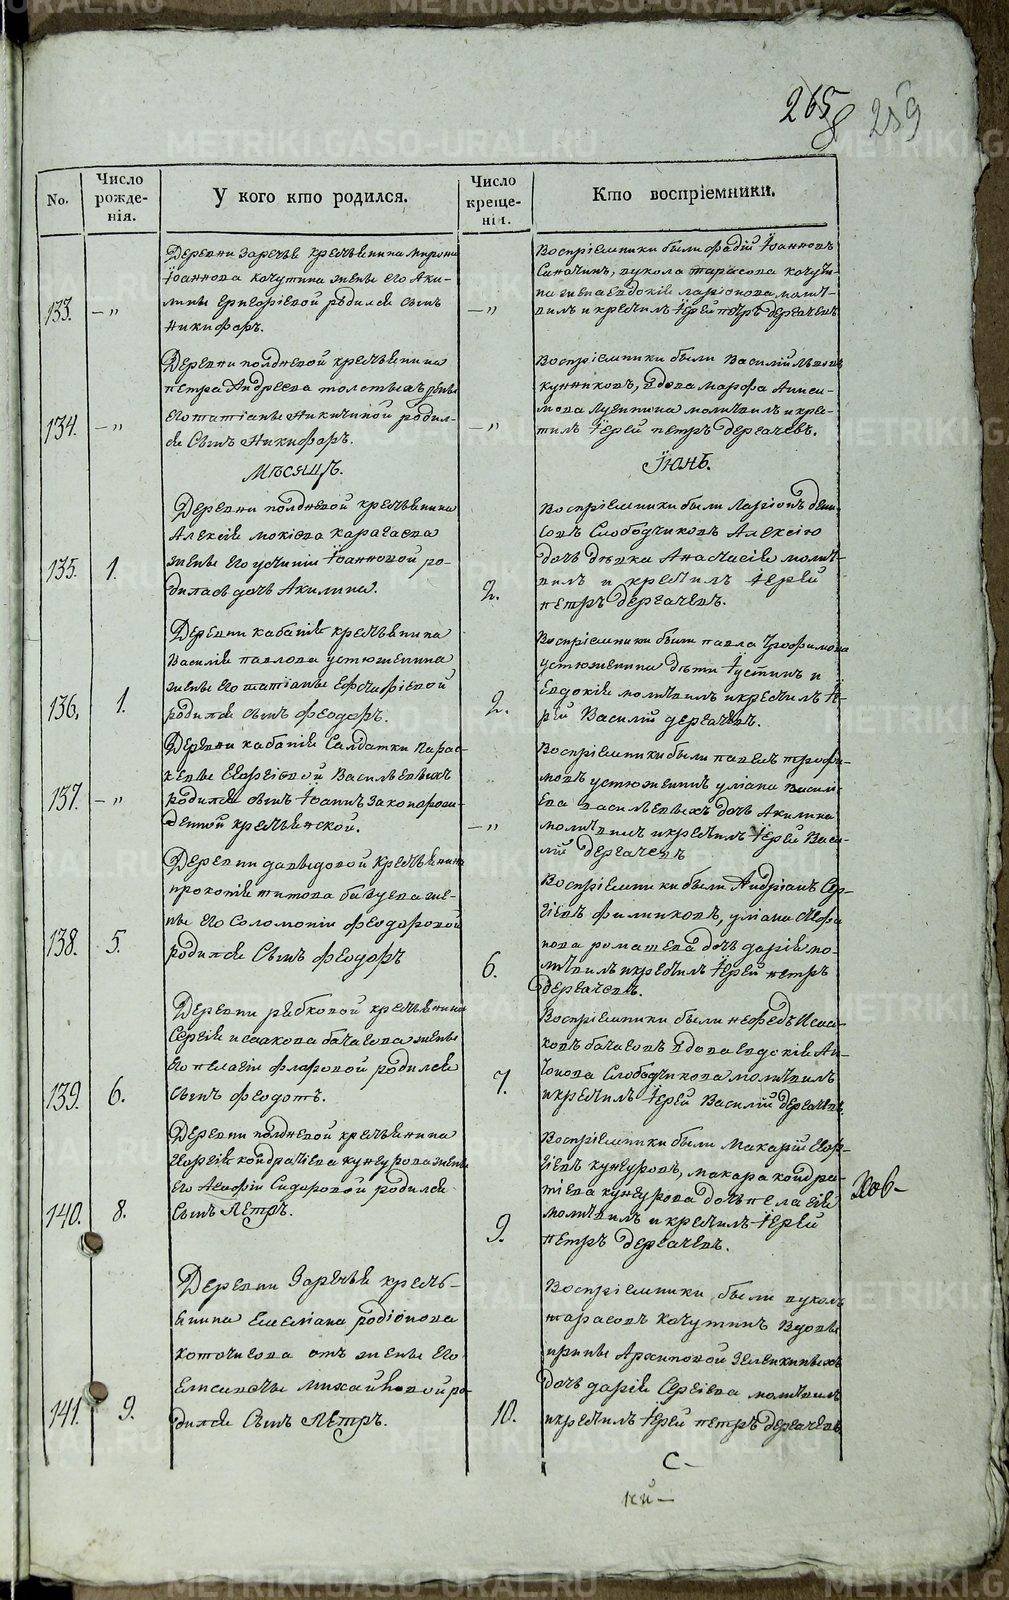 265
8
259
No.
Число рожде-нія.
У кого кто родился.
Число креще-нія.
Кто воспріемники.
133. —„
Деревни Заречье крестьянина Мирона
Іоаннова Кочутина жены его Аки-
лины Григоріевой родился сынъ
Никифоръ.
—„
Воспріемники были Фадій Іоанновъ
Синачинъ, Вукола Тарасова Кочути-
на жена Евдокія Ларіонова, молит-
вилъ и крестилъ Іерей Петръ Дергачевъ
134. —„
Деревни Полдневой крестьянина
Петра Андреева Толстыхъ жены
его Татіаны Никитиной родил-
ся Сынъ Никифоръ.
—„
Воспріемники были Василій Львовъ
вдова Марфа Аниси-
мова молитвилъ и кре-
тилъ Іерей Петръ Дергачевъ.
Мѣсяцъ.
Іюнь.
135. 1.
Деревни Полдневой крестьянина
Алексія Мокіева Карагаева
жены его Устиніи Іоанновой ро-
дилась дочь Акилина.
2.
Воспріемники были Ларіонъ Дени-
совъ Слободчиковъ Алексію
дочь дѣвка Анастасія молит-
вилъ и крестилъ Іерей
Петръ Дергачевъ.
136. 1.
Деревни Кабаніе крестьянина
Василія Павлова Устюженина
жены его Татіаны Ефстафіевой
родился сынъ Феодоръ.
2.
Воспріемники были Павла Трофимова
Устюженина дѣти Іустинъ и
Евдокія молитвилъ и крестилъ Іе-
рей Василій Дергачевъ.
137. —„
Деревни Кабаніе Салдатки Парас-
кевы Георгіевой Васильевыхъ
родился сынъ Іоаннъ Законорож-
денной крестьянской.
—„
Воспріемники были Павелъ Трофи-
мовъ Устюженинъ Уліана Василь-
ева Васильевыхъ дочь Акилина
молитвилъ и крестилъ Іерей Васи-
лій Дергачевъ
138. 5.
Деревни Давыдовой Крестьянина
Прокопія Титова Бабуева же-
ны его Соломоніи Феодоровой
родился Сынъ Феодоръ
6.
Воспріемники были Андріанъ Сер-
гіевъ Филинковъ, Уліана Стефа
нова Ромашева дочь Дарія мо-
литвилъ и крестилъ Іерей Петръ
Дергачевъ.
139. 6.
Деревни Рыбковой крестьянина
Сергія Исакова Бачасова жены
его Пелагіи Фларовой родился
Сынъ Феодотъ.
7.
Воспріемники были Нефедъ Исаа-
ковъ Бачасовъ вдова Евдокія Ан-
тонова Слободчикова молитвилъ
и крестилъ Іерей Василій Дергачевъ
140. 8.
Деревни Полдневой крестьянина
Георгія Кондратіева Кунгурова жены
его Агафіи Сидоровой родился
Сынъ Петръ.
9.
Воспріемники были Макарій Геор-
гіевъ Кунгуровъ, Макара Кондра-
тіева Кунгурова дочь Пелагія
молитвилъ и крестилъ Іерей
Петръ Дергачевъ.
141. 9.
Деревни Заречья кресть-
янина Емеліана Родіонова
Коточигова отъ жены его
Елисаветы Михайловой ро-
дился Сынъ Петръ.
10.
Воспріемники были Вуколъ
Тарасовъ Качутинъ Вдовы
Ирины Архиповой Зеленкиныхъ
дочь Дарія Сергіева молитвилъ
и крестилъ Іерей Петръ Дергачевъ
С-
METRIKI.GASO-URAL.RU